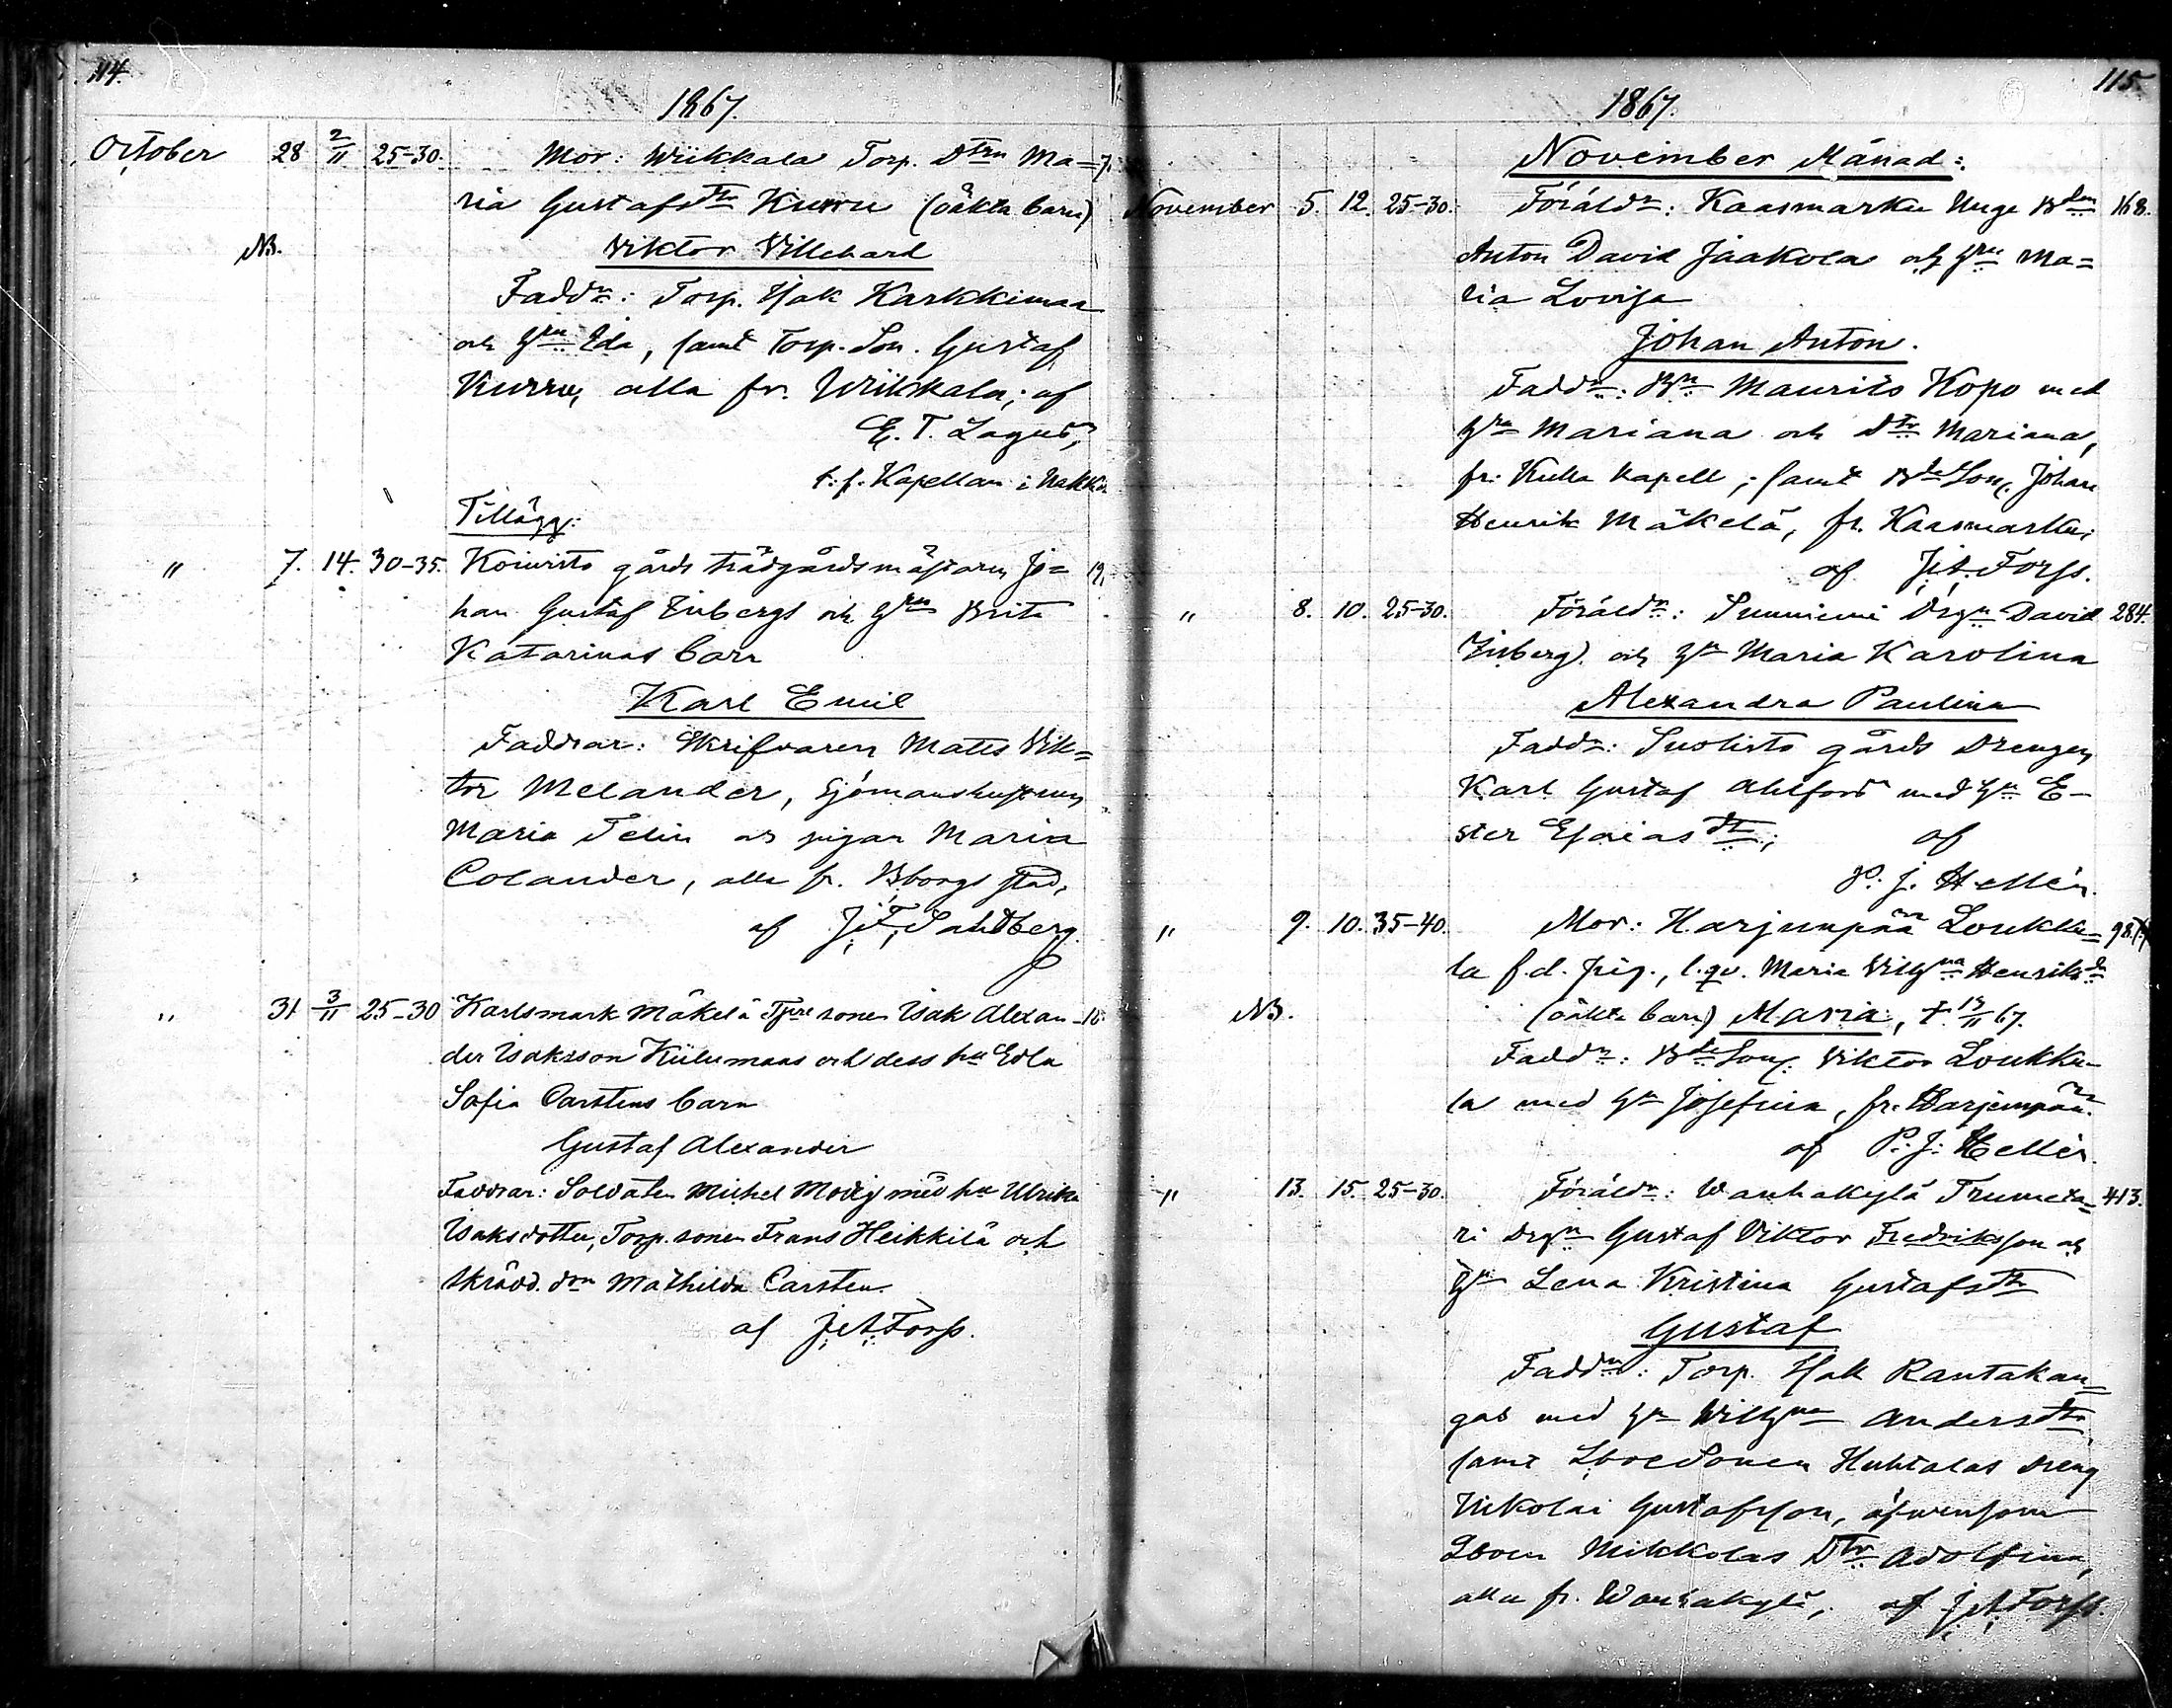 114.
1867.
October 28 2/11 25-30. Mor: Wiikkala Torp. Dtrn Ma= 7.
ria Gustafsdtr Kurru (oäkta barn)
NB. Viktor Villehard
Faddr: Torp. Isak Karkkimaa
och Hru Eda, samt Torp. Son. Gustaf
Kurru, alla fr. Wiikkala; af
E. T. Lagus,
t. f. Kapellan i Nakkila
Tillägg:
" 7. 14. 30-35. Koivisto gårds trädgårdsmästaren Jo= 19.
han Gustaf Enbergs och Hru Brita
Katarinas barn
Karl Emil
Faddrar: Skrifvaren Matts Vik=
tor Melander, Sjömanshustrun
Maria Telin och pigan Maria
Colander, alla fr. Bborgs stad,
af J. F. Sahlberg.
" 31 3/11 25-30 Karlsmark Mäkelä sonen Isak Alexan-
der Isaksson Kiilumaas och dess hu Edla
Sofia Carstens barn
Gustaf Alexander
Faddrar: Soldaten Michel Modig med hu Ulrika
Isaksdotter, Torp. sonen Frans Heikkilä och
Skrädd. drn Mathilda Carsten.
af J. A. Forss.
115.
1867.
November Månad:
November 5. 12. 25-30. Föräldr: Kaasmarku Uuge Bden 168.
Anton David Jaakola och Hru Ma=
ria Lovisa
Johan Anton.
Faddr: Bn Maurits Kopo med
Hru Mariana och dtr Mariana,
fr. Kulla Kapell; samt Bde Son. Johan
Henrik Mäkelä, fr. Kaasmarku;
af J. A. Forss.
" 8. 10. 25-30. Föräldr: Sunniemi Drgn David 284.
och Hu Maria Karolina
Alexandra Paulina
Faddr: Suolisto gårds Drengen
Karl Gustaf Ahlfors med Hu E-
ster Esaiasdtr; af
P. J. Hellén.
" 9. 10. 35-40. Mor: Harjunpää Loukku= 98.
la f.d. pig., l. qv. Maria Vilhna Henriksdr
NB. (oäkta barn) Maria, †. 13/11 67.
Faddr: Bde Son. Viktor Loukku-
la med Hu Josefina, fr. Harjunpää.
af P. J. Hellén.
" 13. 15. 25-30. Föräldr: Wanhakylä Trumeta= 413.
ri Drgn Gustaf Viktor Fredriksson och
Hu Lena Kristina Gustafsdtr
Gustaf
Faddr: Torp. Isak Rantakan=
gas med Hu Vilhna Andersdtr,
samt Sonen Huhtalas dreng
Nikolai Gustafsson, äfvensom
Mikkolas Dtr Adolfina,
alla fr. Wanhakylä; af J. A. Forss.